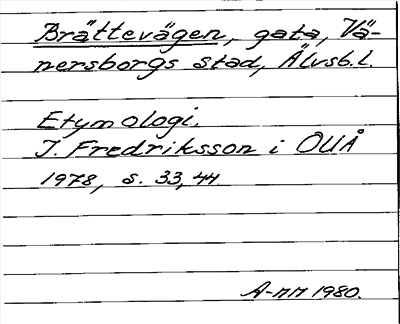 Brättevägen, gata, Vä-
nersborgs stad, Älvsb.l.
Etymologi.
I. Fredriksson i OUÅ
1978, s. 33, 44.
A-nn 1980.